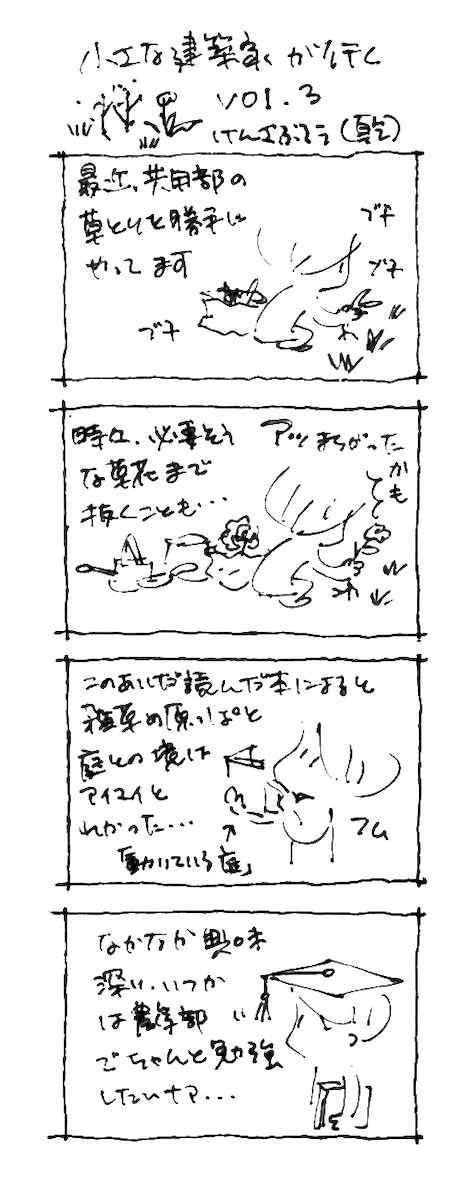 小さな建築家がゆく
vol.3
けんざぶろう(真乞)
最近、共用部の
草とりを勝手に
やってます
ブチ
ブチ
ブチ
時々、必要そう
な草花まで
抜くことも…
アッまちがった
かも
このあいだ読んだ本によると
雑草の原っぱと
庭との境は
アイマイと
わかった…
「動いている庭」
フム
なかなか興味
深い。いつか
は農学部
でちゃんと勉強
したいナァ…